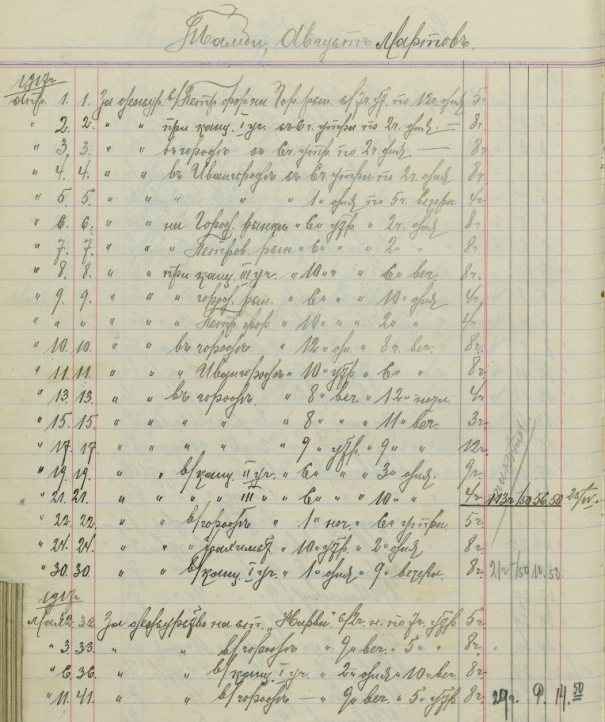 Тамби, Августъ Мартовъ.
1917г.
апр. 1. 1. За дежур. в/Петр. фор. на Гор. рын. 7ч. ут. по 12ч. дня 5ч.
" 2. 2. " " при канц. I уч. съ 6ч. утра по 2ч. дня — 8ч.
" 3. 3. " " въ городѣ съ 6ч. утр. по 2ч. дня — 8ч.
" 4. 4. " " въ Ивангородѣ съ 6ч. утра по 2ч. дня 8ч.
" 5. 5. " " " " " 1ч дня по 5ч. вечера 4ч.
" 6. 6. " " на Город. рынкѣ " 6ч утр " 2ч. дня 8ч.
" 7. 7. " " " Петров. рын " 6ч " " 2ч " 8ч.
" 8. 8. " " при канц. III уч. " 10ч " " 6ч веч. 8ч.
" 9. 9. " " " город. рын. " 6ч " " 10ч дня 4ч.
" " " " " " Петр. фор. " 10ч " " 2ч " 4ч.
" 10. 10. " " въ городѣ " 12ч дн. " 8ч. веч. 8ч.
" 11. 11. " " " Ивангородѣ " 10ч утр " 6ч " 8ч.
" 13. 13. " " въ городѣ " 8ч веч. " 12ч ночи. 4ч.
" 15. 15. " " " " " 8ч " " 11ч веч. 3ч.
" 17. 17. " " " " " 9ч утр. " 9ч " 12ч.
" 19. 19. " " в/канц. II уч. " 6ч " " 3ч дня. 9ч.
" 21. 21. " " " " III " " 6ч " " 10ч " 4ч. 113ч /50 56.50
" 22. 22. " " в/городѣ " 1ч ноч. " 6ч утра 5ч.
" 24. 24. " " " " 10ч утр. " 2ч дня 8ч.
" 30. 30. " " в/канц. I уч. " 1ч дня " 9ч вечера. 8ч. 21ч /50 10.50.
1917г.
Мая 2. 32. За дежурство на ст. "Нарва" с/2ч. н. по 7ч. утр 5ч.
" 3. 33. " " в/городѣ " 9ч веч. " 5ч " 8ч.
" 6. 36. " " в/канц. I уч. " 2ч дня " 10ч веч. 8ч.
" 11. 41. " " в/городѣ — " 9ч веч. " 5ч утр 8ч. 29ч. 9. 14.50